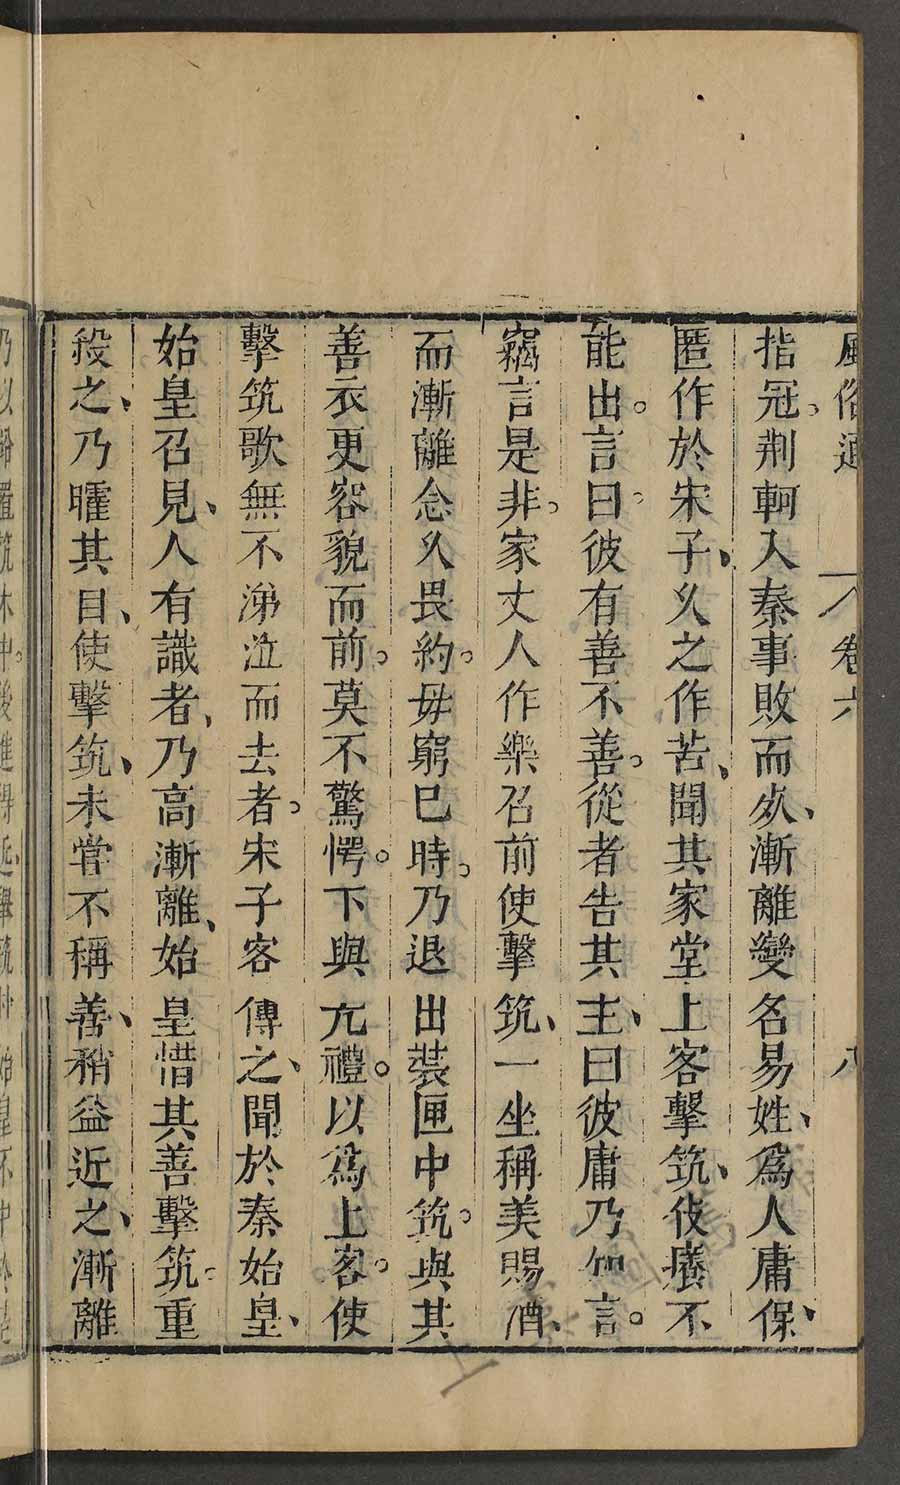 風俗通 卷六 八
指冠、荆軻入秦事敗而死、漸離變名易姓、爲人庸保、
匿作於宋子、久之作苦、聞其家堂上客擊筑、伎癢不
能出。言曰。彼有善不善。從者告其主、曰彼庸乃知言。
竊言是非。家丈人作樂召前使擊筑、一坐稱美賜酒、
而漸離念久畏約。毋窮巳時。乃退出裝匣中筑。與其
善衣更容貌而前。莫不驚愕。下與亢禮。以爲上客。使
擊筑歌無不涕泣而去者。宋子客傳之、聞於秦始皇、
始皇召見、人有識者、乃高漸離、始皇惜其善擊筑。重
殺之、乃矐其目、使擊筑、未嘗不稱善、稍益近之、漸離